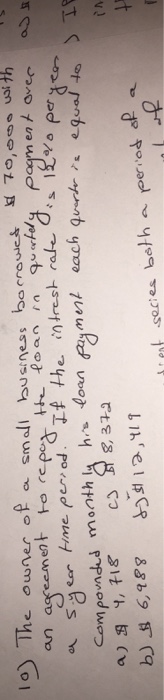 10) The owner of a small business borrowed $ 70,000 with
an agreement to repay the loan in quartely payment over
a 5 year time period. If the intrest rate is 12% per year
Compounded monthly his loan payment each quartr is equal to
a) $ 4,718 c) $ 8,372
b) $ 6,988 d) $ 12,419
series both a period of a